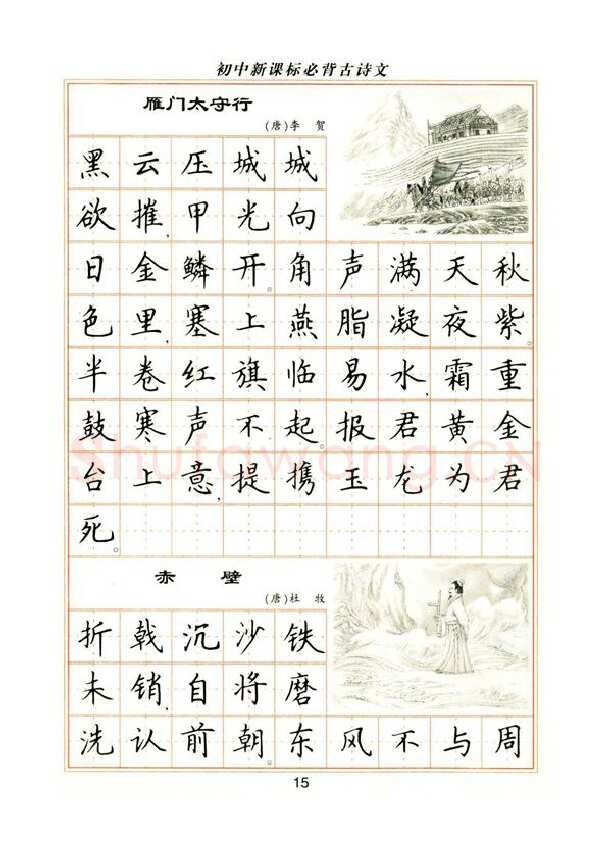 初中新课标必背古诗文
雁门太守行
(唐)李 贺
黑云压城城
欲摧,甲光向
日金鳞开。角声满天秋
色里,塞上燕脂凝夜紫。
半卷红旗临易水,霜重
鼓寒声不起。报君黄金
台上意,提携玉龙为君
死。
赤 壁
(唐)杜 牧
折戟沉沙铁
未销,自将磨
洗认前朝。东风不与周
15
Shufawang.CN